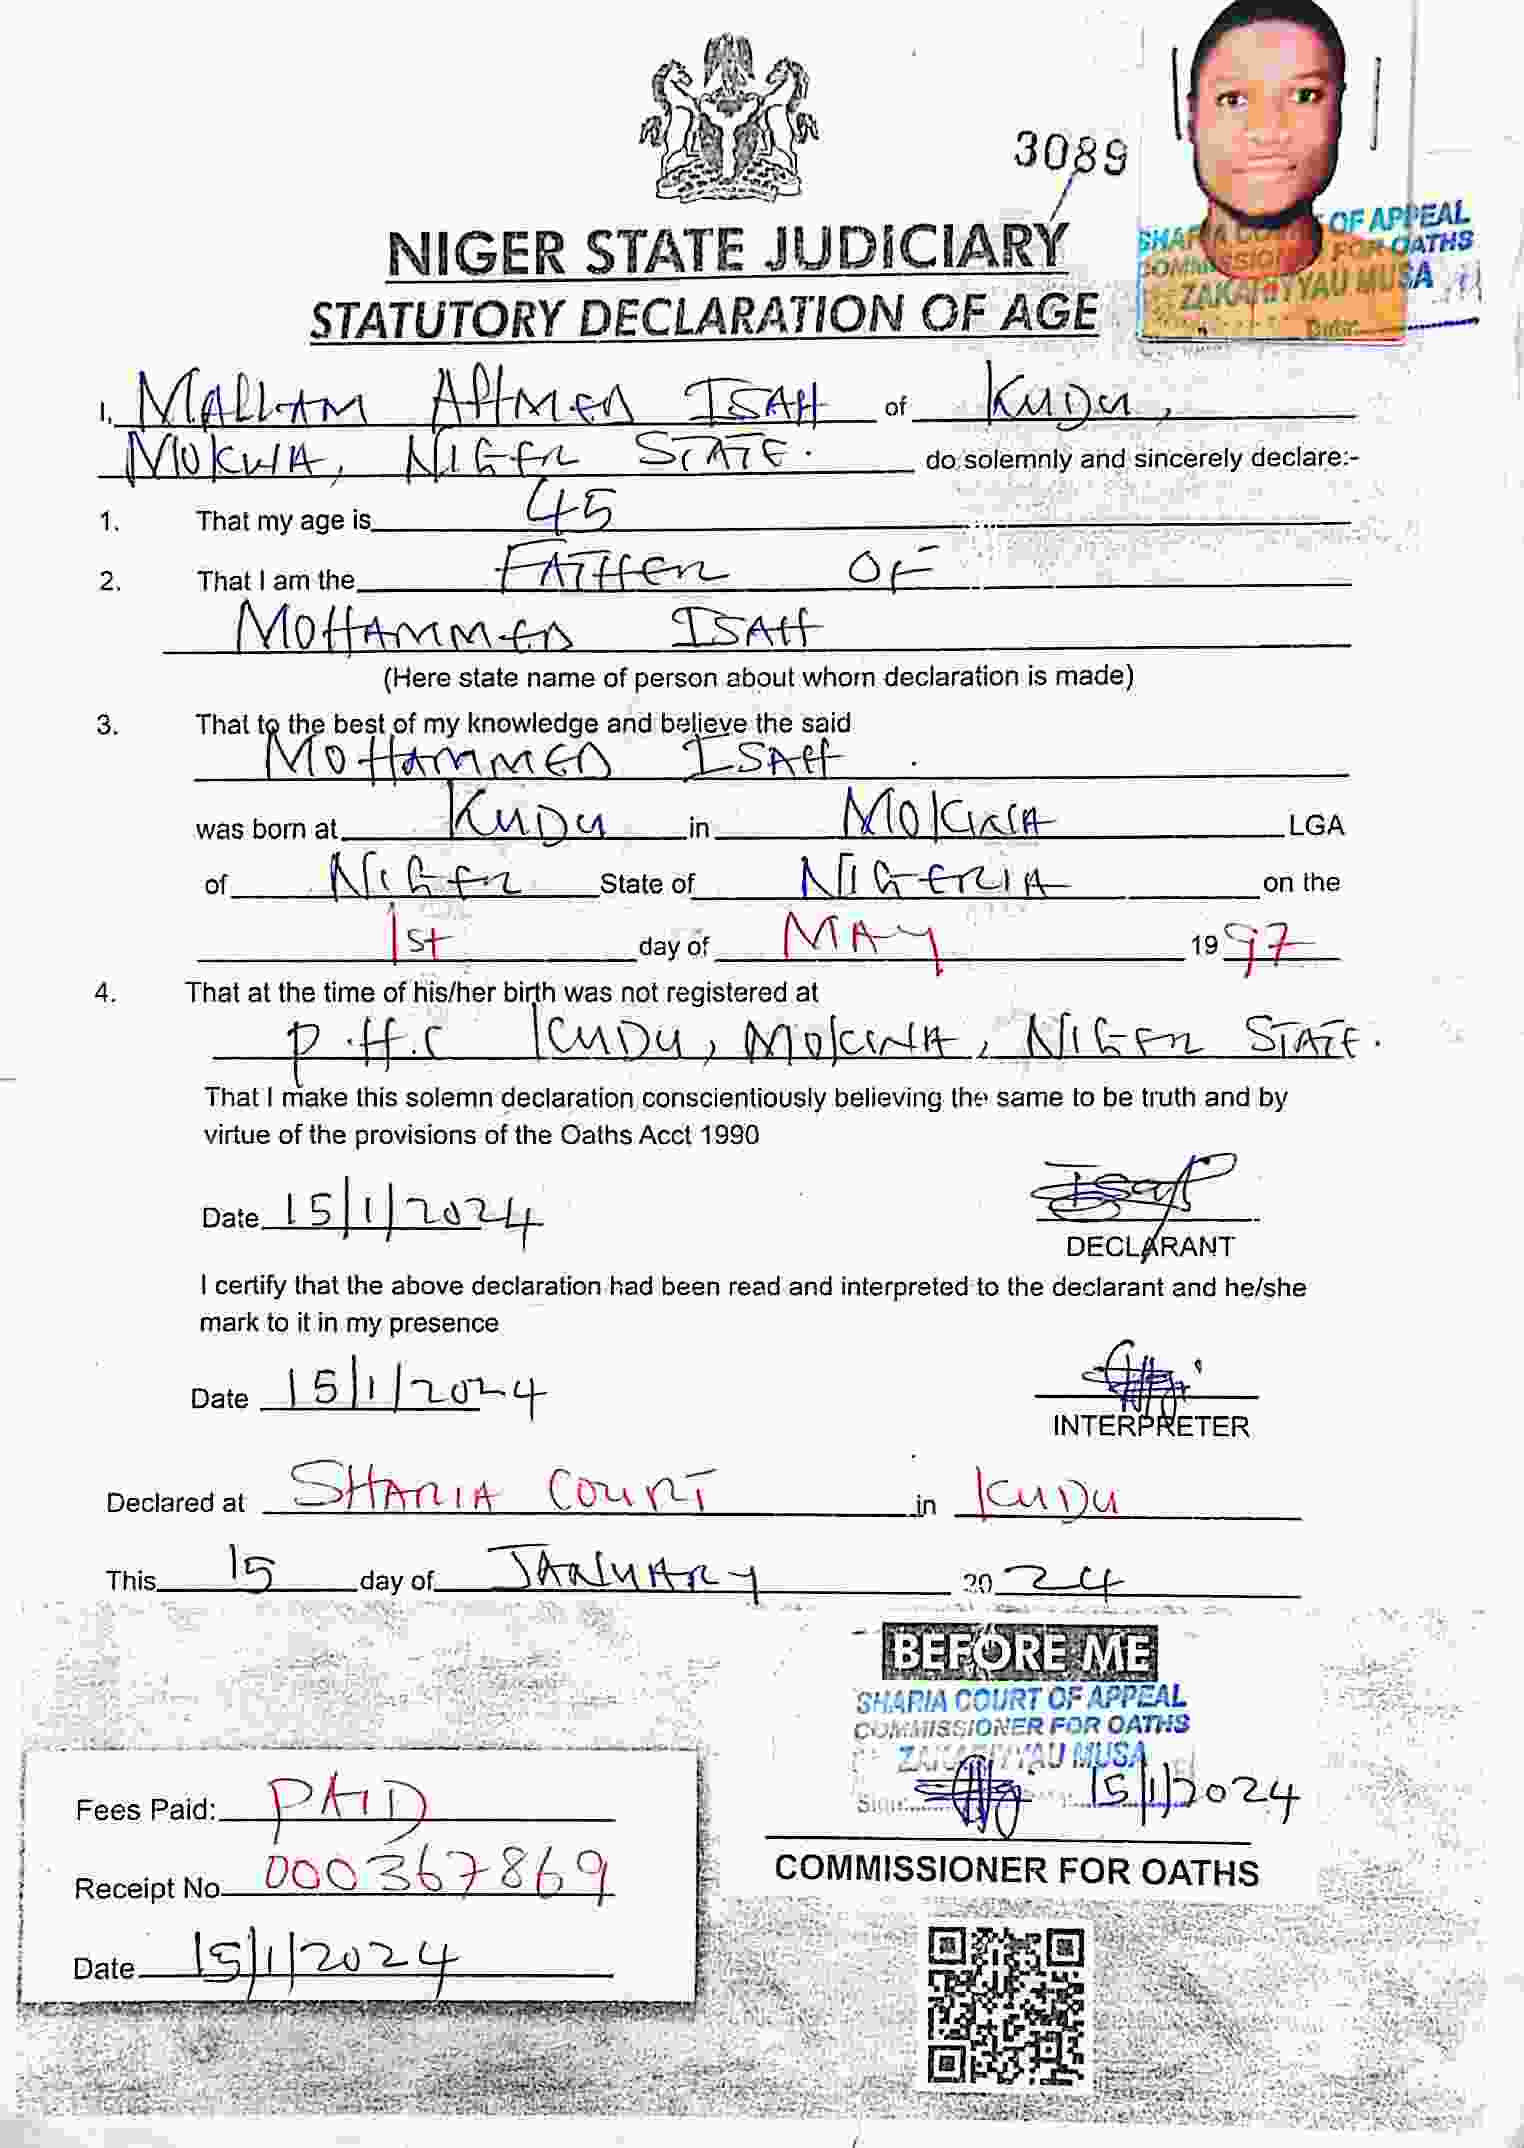 3089
SHARIA COURT OF APPEAL
COMMISSIONER FOR OATHS
ZAKARIYYAU MUSA
Date:
NIGER STATE JUDICIARY
STATUTORY DECLARATION OF AGE
I, MALLAM AHMED ISAH of KUDU,
MOKWA, NIGER STATE. do solemnly and sincerely declare:-
1. That my age is 45
2. That I am the FATHER OF
MOHAMMED ISAH
(Here state name of person about whom declaration is made)
3. That to the best of my knowledge and believe the said
MOHAMMED ISAH
was born at KUDU in MOKWA LGA
of NIGER State of NIGERIA on the
1st day of MAY 1997
4. That at the time of his/her birth was not registered at
P.H.C KUDU, MOKWA, NIGER STATE.
That I make this solemn declaration conscientiously believing the same to be truth and by
virtue of the provisions of the Oaths Acct 1990
Date 15/1/2024
DECLARANT
I certify that the above declaration had been read and interpreted to the declarant and he/she
mark to it in my presence
Date 15/1/2024
INTERPRETER
Declared at SHARIA COURT in KUDU
This 15 day of JANUARY 2024
BEFORE ME
SHARIA COURT OF APPEAL
COMMISSIONER FOR OATHS
ZAKARIYYAU MUSA
Sign: 15/1/2024
COMMISSIONER FOR OATHS
Fees Paid: PAID
Receipt No 000367869
Date 15/1/2024